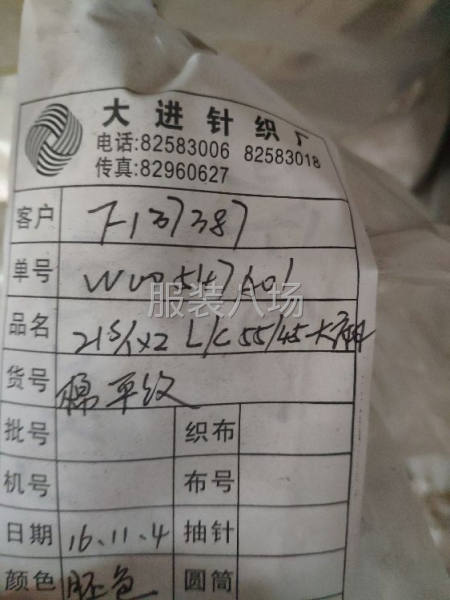 大进针织厂
电话:82583006 82583018
传真:82960627
客户 F137387
单号
品名 21S/1X2 L/C 55/45
货号 棉平纹
批号 织布
机号 布号
日期 16.11.4 抽针
颜色 胚色 圆筒
服装八场